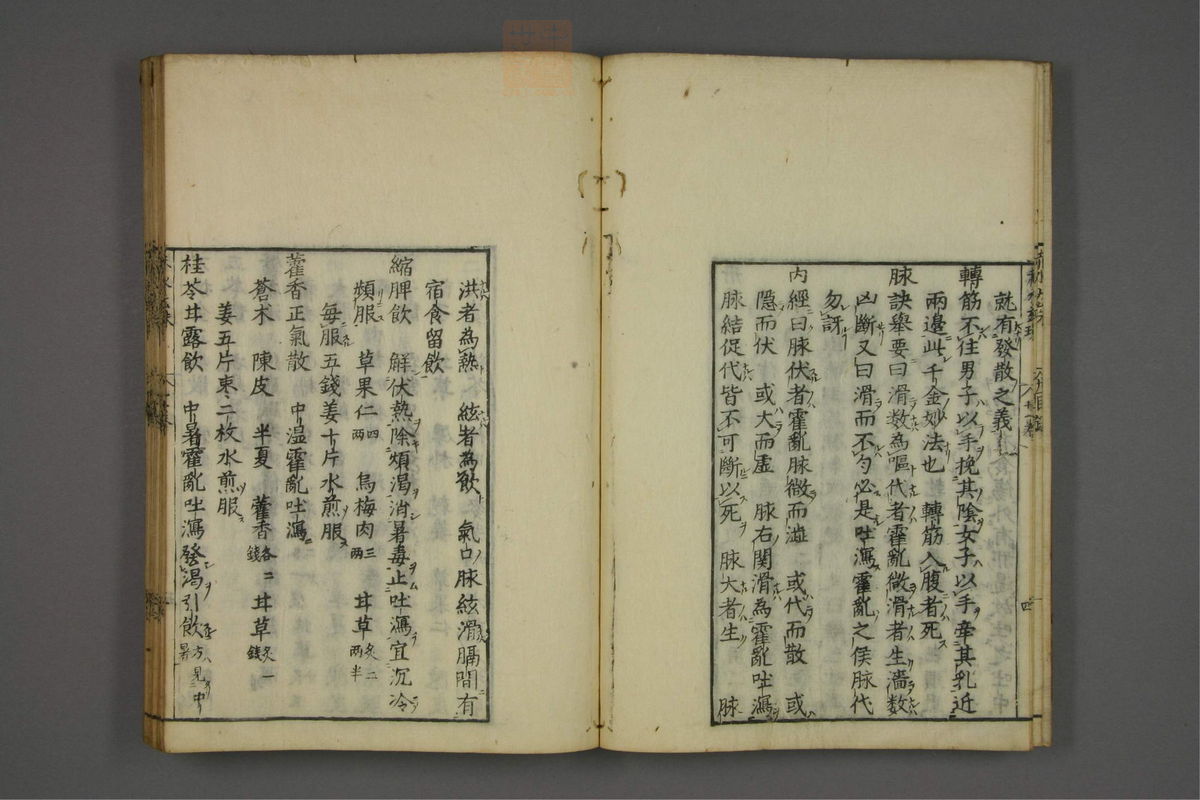 就有發散之義
轉筋不住男子以手挽其陰女子以手牽其乳近
兩邊此千金妙法也 轉筋入腹者死
脉訣舉要曰滑数為嘔代者霍亂微滑者生濇数
凶斷又曰滑而不匀必是吐瀉霍亂之候脉代
勿訝
内經曰脉伏者霍亂脉微而澁 或代而散 或
隱而伏 或大而虚 脉右関滑為霍亂吐瀉
脉結促代皆不可斷以死 脉大者生 脉
洪者為熱 絃者為飲 氣口脉絃滑膈間有
宿食留飲
縮脾飲 解伏熱除煩渴消暑毒止吐瀉宜沉冷
頻服 草果仁四兩 烏梅肉三兩 甘草炙二兩半
每服五錢姜十片水煎服
藿香正氣散 中温霍亂吐瀉
蒼术 陳皮 半夏 藿香各二錢 甘草炙一錢
姜五片枣二枚水煎服
桂苓甘露飲 中暑霍亂吐瀉發渴引飲方見中暑